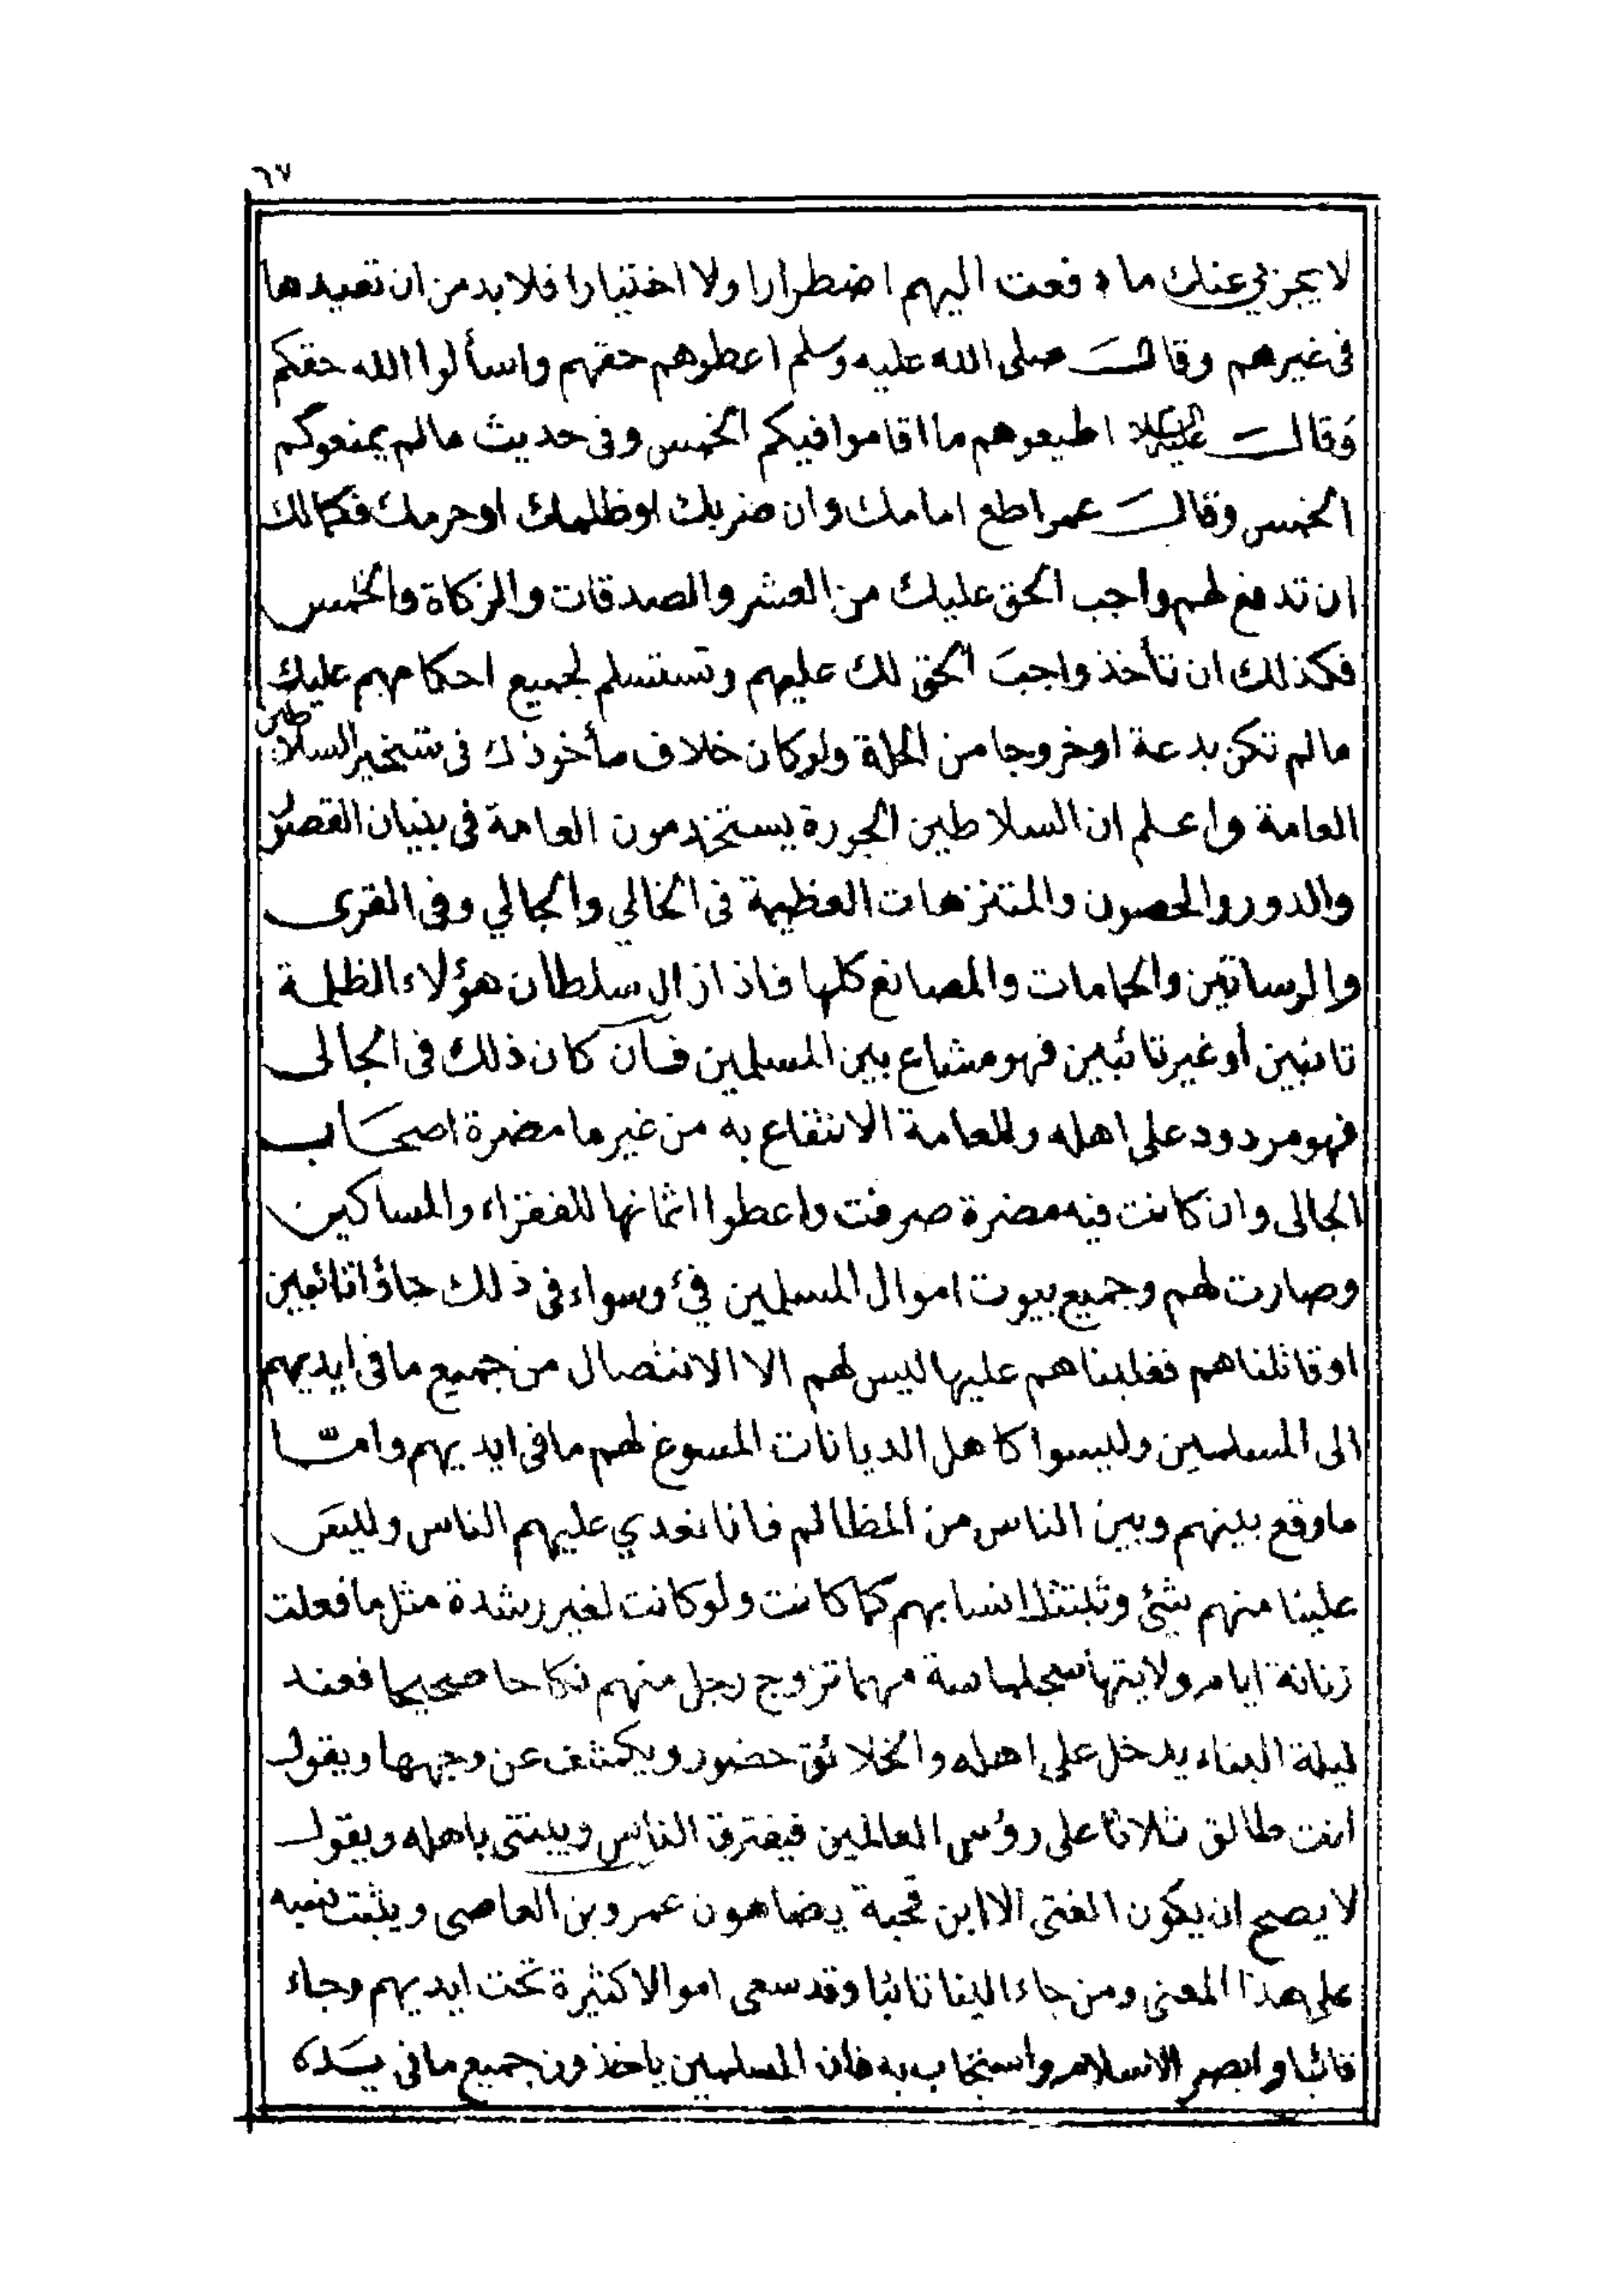 ٦٧
لا يجزي عنك ما دفعت اليهم اضطرارا ولا اختيارا فلا بد من ان تعيدها
في غيرهم وقال صلى الله عليه وسلم اعطوهم حقهم واسألوا الله حقكم
وقال عليه السلام اطيعوهم ما اقاموا فيكم الخمس وفي حديث ما لم يمنعوكم
الخمس وقال عمر اطع امامك وان ضربك او ظلمك او حرمك فكما لك
ان تدفع لهم واجب الحق عليك من العشر والصدقات والزكاة والخمس
فكذلك ان تأخذ واجب الحق لك عليهم وتستسلم لجميع احكامهم عليك
ما لم تكن بدعة او خروجا من الملة ولو كان خلاف مأخوذك في تسخير السلاطين
العامة واعلم ان السلاطين الجورة يستخدمون العامة في بنيان القصور
والدور والحصون والمتنزهات العظيمة في الخالي والجالي وفي القرى
والرساتين والحمامات والمصانع كلها فاذا زال سلطان هؤلاء الظلمة
تائبين أو غير تائبين فهو مشاع بين المسلمين فان كان ذلك في الجالى
فهو مردود على اهله وللعامة الانتفاع به من غير ما مضرة اصحاب
الجالى وان كانت فيه مضرة صرفت واعطوا اثمانها للفقراء والمساكين
وصارت لهم وجميع بيوت اموال المسلمين فيء وسواء في ذلك جاؤا تائبين
او قاتلناهم فغلبناهم عليها ليس لهم الا الانتصال من جميع ما في ايديهم
الى المسلمين وليسوا كاهل الديانات المسوغ لهم ما في ايديهم وامّا
ما وقع بينهم وبين الناس من المظالم فانا نعدي عليهم الناس وليس
علينا منهم شيء وثبتت انسابهم كما كانت ولو كانت لغير رشدة مثل ما فعلت
زناتة ايام ولايتها سجلماسة مهما تزوج رجل منهم نكاحا صحيحا فعند
ليلة البناء يدخل على اهله والخلائق حضور ويكشف عن وجهها ويقول
انت طالق ثلاثا على رؤس العالمين فيفترق الناس ويبتنى باهله ويقول
لا يصح ان يكون الفتى الا ابن قحبة يضاهون عمرو بن العاصى ويثبت نسبه
على هذا المعنى ومن جاء الينا تائبا وقد سعى اموالا كثيرة تحت ايديهم وجاء
تائبا وابصر الاسلام واستجاب به فان المسلمين ياخذون جميع ما في يده